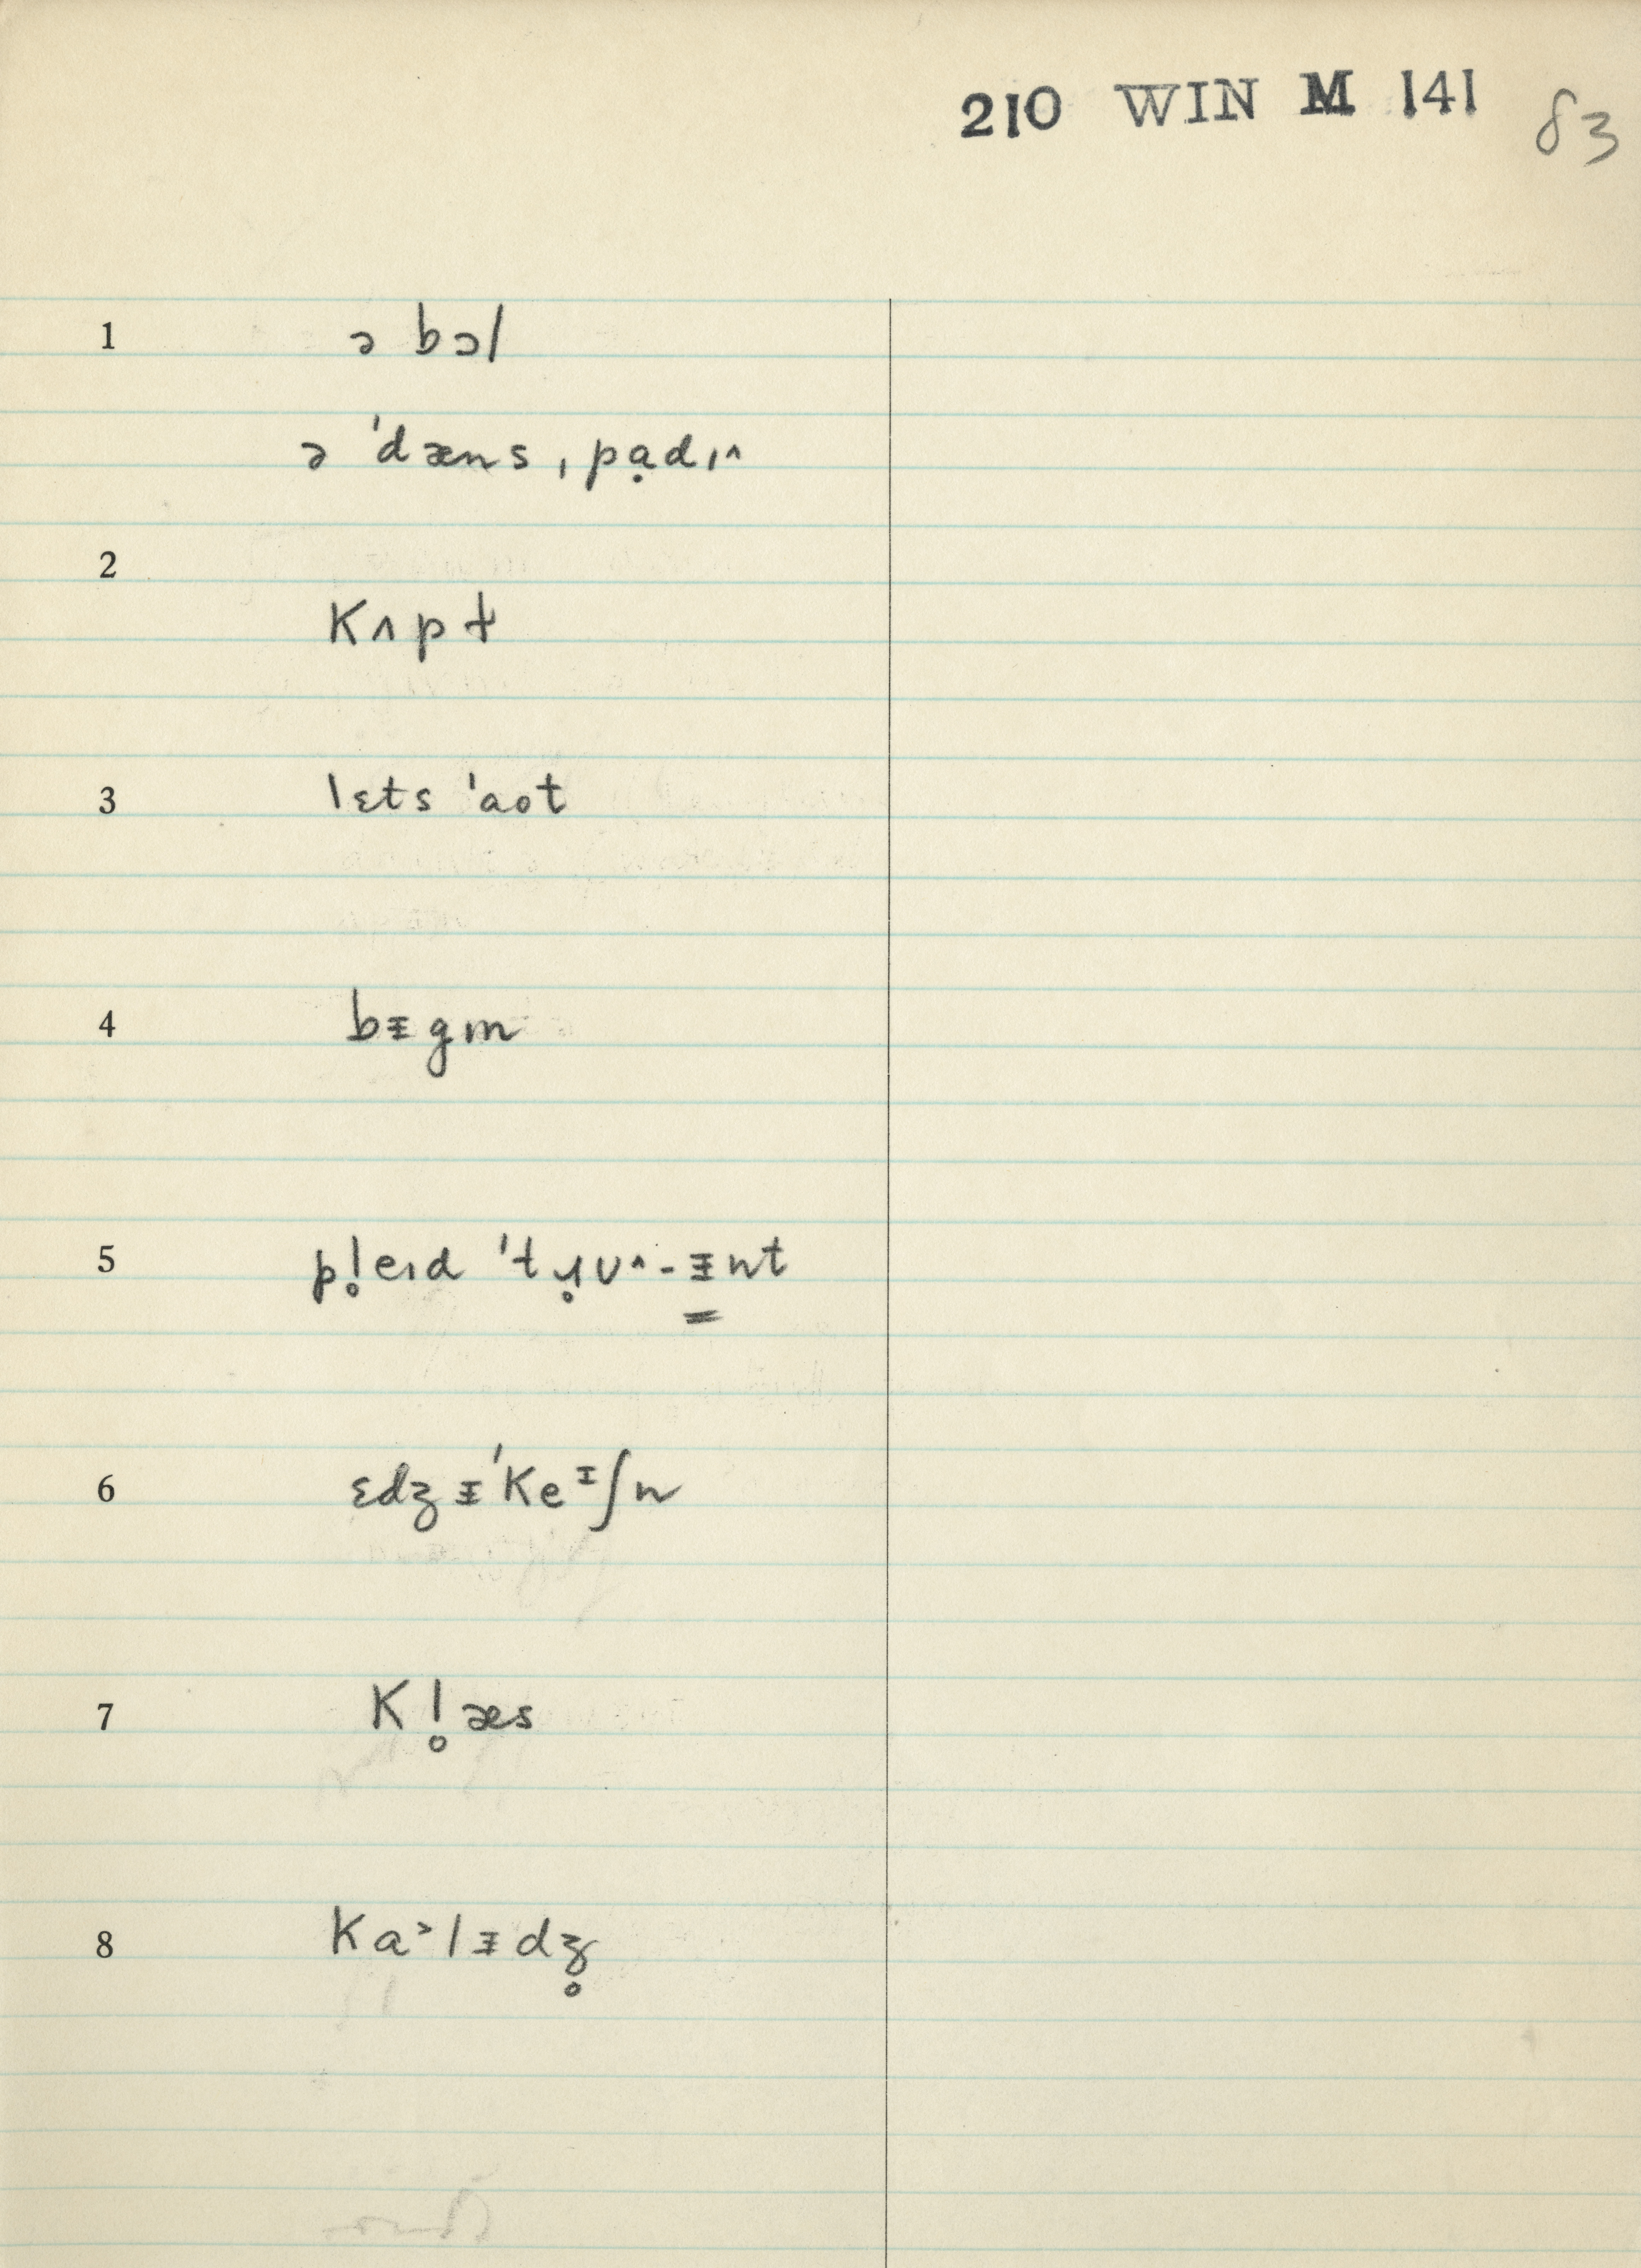 210 WIN M 141 83
1 ə bɔl
ə ˈdæns ˌpạdɪ^
2 kʌpt
3 lɛts ˈaot
4 bᵻgɪn
5 pl̥eɪd ˈtɹ̣ʊ^-ᵻ̳nt
6 ɛdʒᵻˈkeᶦʃn
7 kl̥æs
8 ka˃lᵻdʒ̥